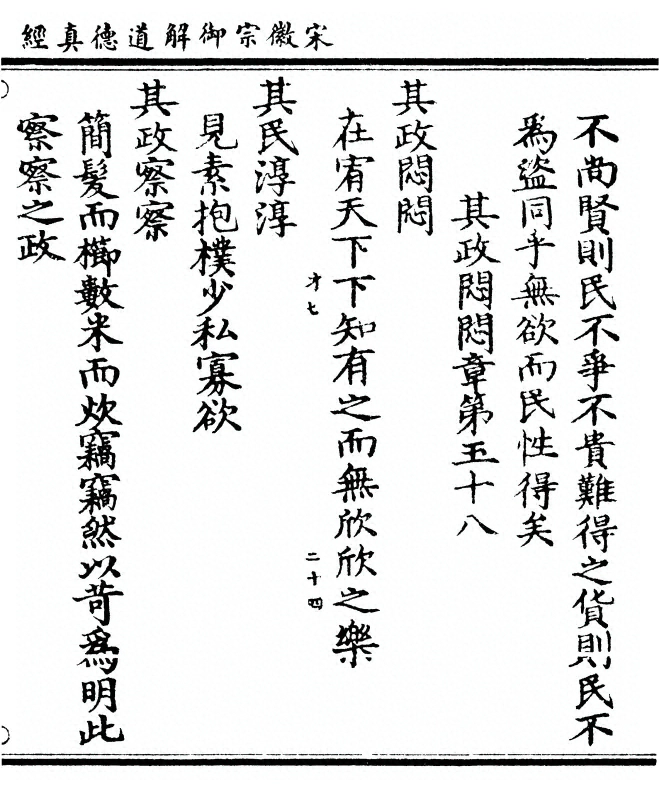 宋徽宗御解道德真經
不尚賢則民不爭不貴難得之貨則民不
爲盜同乎無欲而民性得矣
其政悶悶章第五十八
其政悶悶
在宥天下下知有之而無欣欣之樂
才七
二十四
其民淳淳
見素抱樸少私寡欲
其政察察
簡髮而櫛數米而炊竊竊然以苛爲明此
察察之政